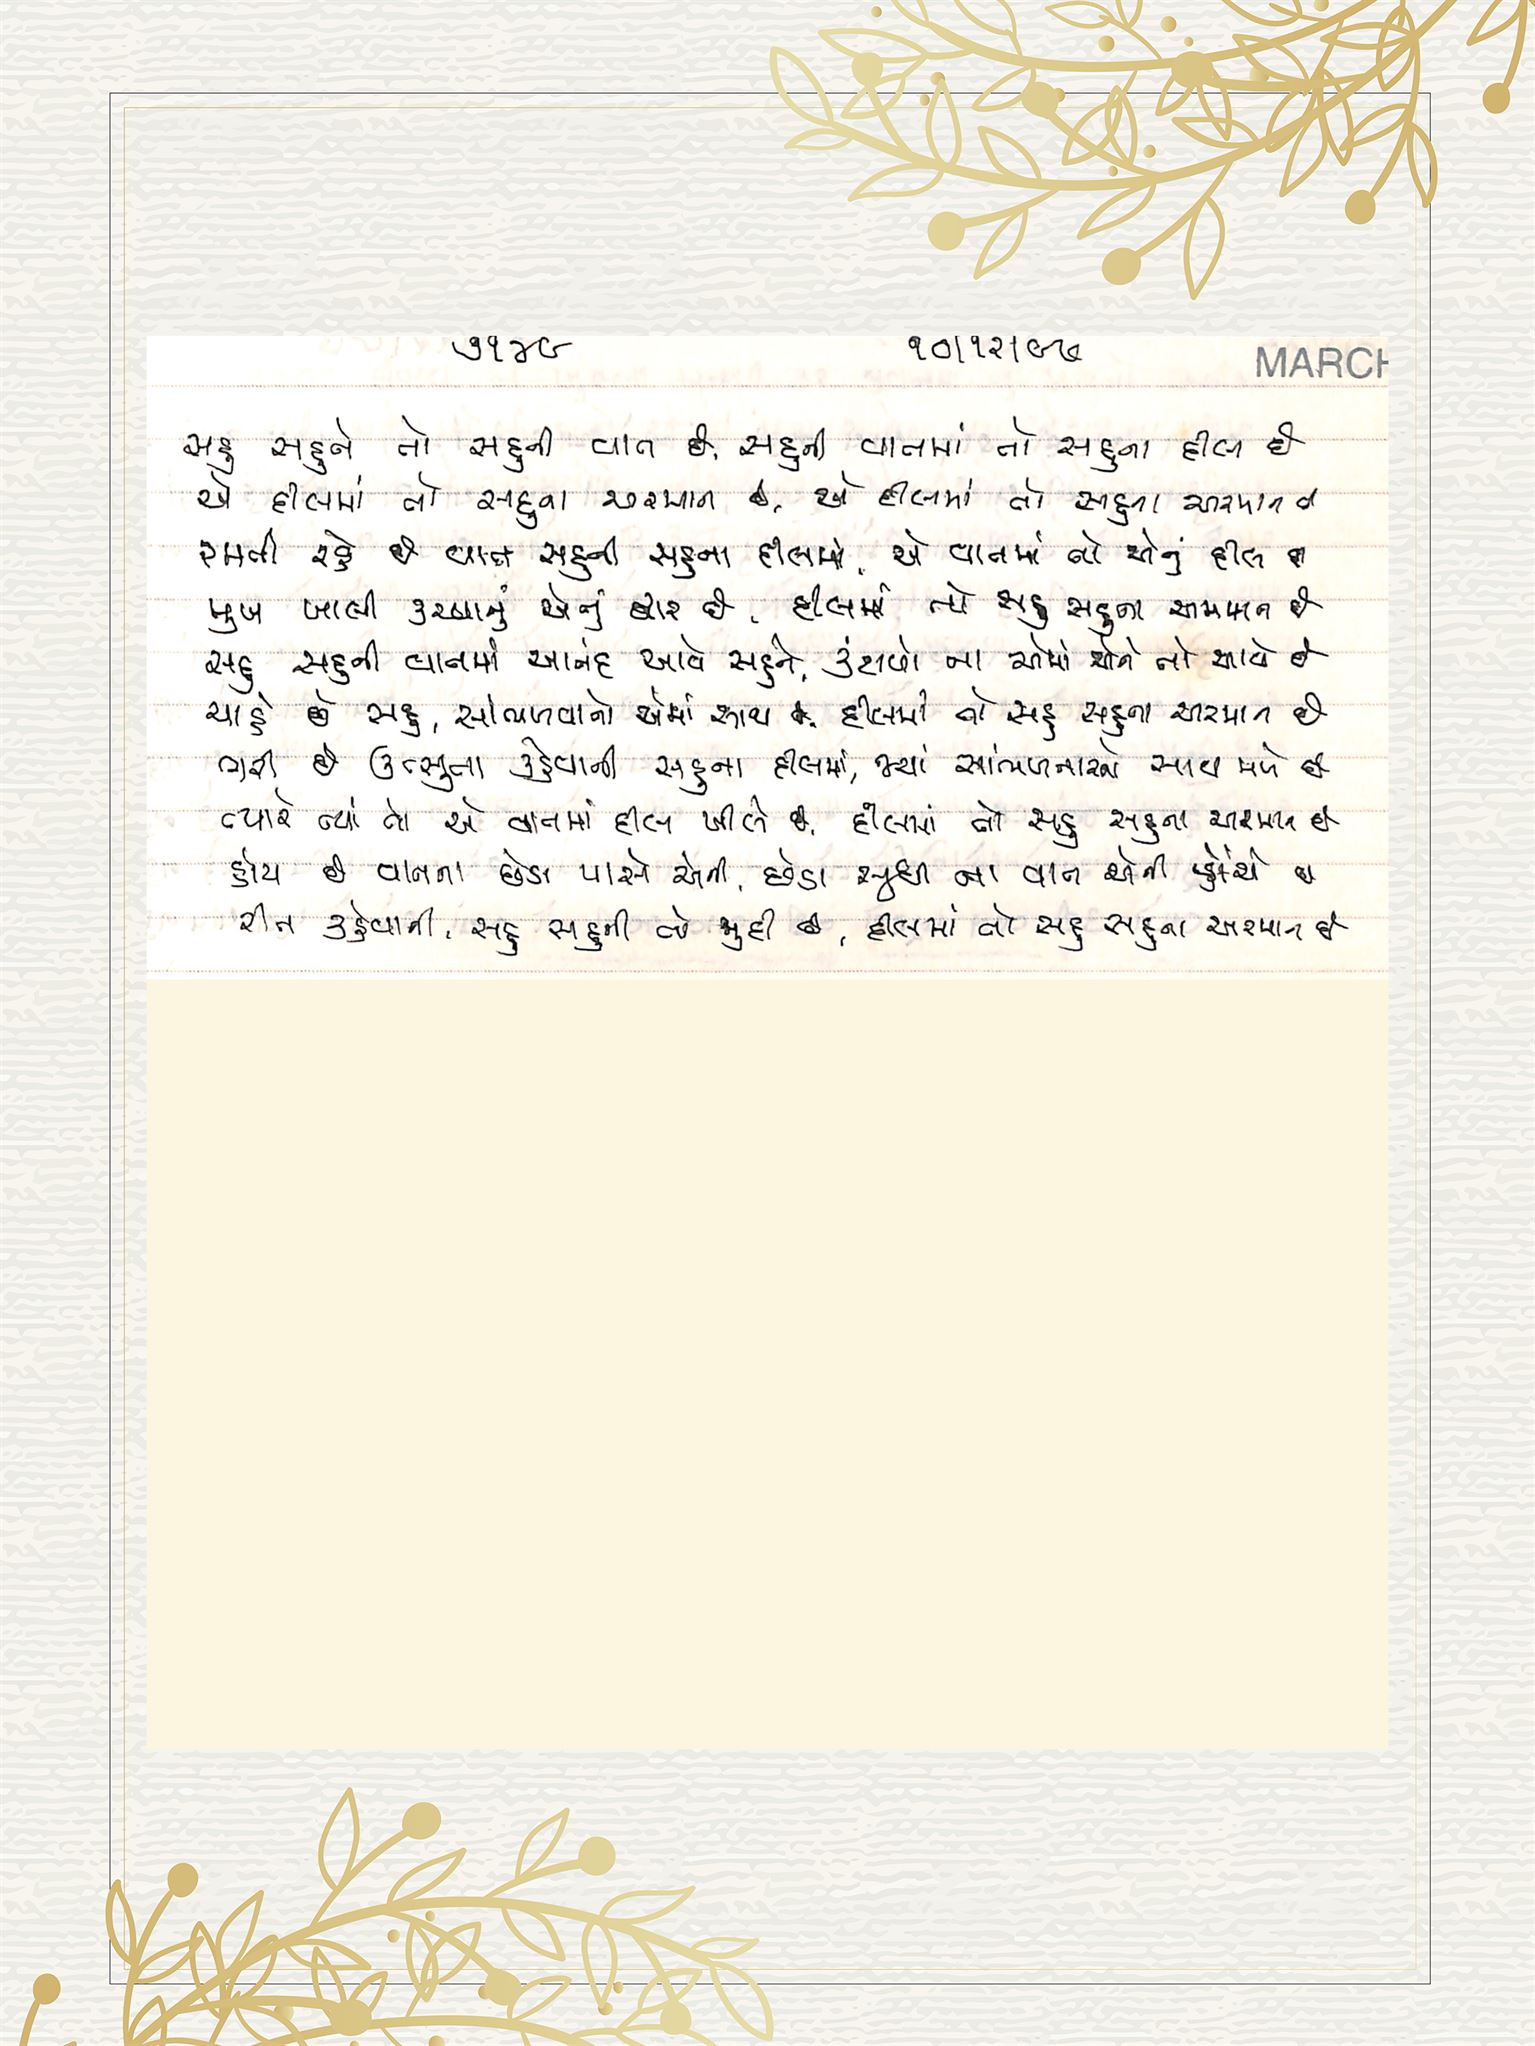 ૭૧૪૯ ૧૦/૧૨/૯૭ MARCH
સહુ સહુને તો સહુની વાત છે, સહુની વાતમાં તો સહુના દીલ છે
એ દીલમાં તો સહુના અરમાન છે, એ દીલમાં તો સહુના અરમાન છે
રમતી રહે છે વાત સહુની સહુના દીલમાં, એ વાતમાં તો એનું દીલ છે
મુખ ખાલી કરવાનું એનું દ્વાર છે, દીલમાં તો સહુ સહુના અરમાન છે
સહુ સહુની વાતમાં આનંદ આવે સહુને, કંટાળો ના એમાં એને તો આવે છે
ચાહે છે સહુ, સાંભળવાનો એમાં સાથ છે, દીલમાં તો સહુ સહુના અરમાન છે
ભરી છે ઉત્સુતા કહેવાની સહુના દીલમાં, જ્યાં સાંભળનારનો સાથ મળે છે
ત્યારે ત્યાં તો એ વાતમાં દીલ ખીલે છે, દીલમાં તો સહુ સહુના અરમાન છે
હોય છે વાતના છેડા પાસે એની, છેડા સુધી ના વાત એની પહોંચે છે
રીત કહેવાની, સહુ સહુની તો જુદી છે, દીલમાં તો સહુ સહુના અરમાન છે